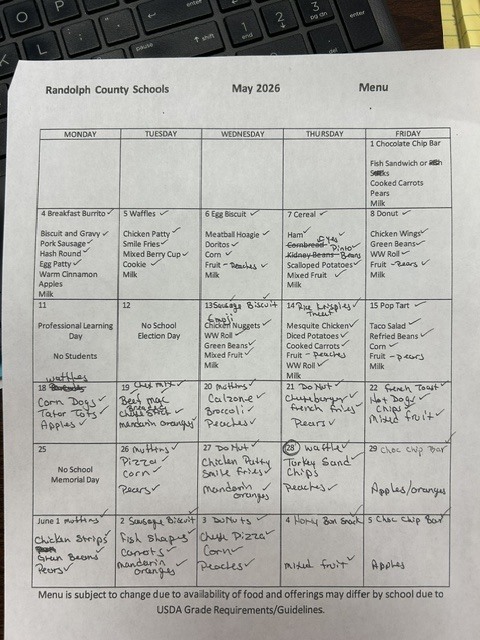 Randolph County Schools May 2026 Menu
MONDAY TUESDAY WEDNESDAY THURSDAY FRIDAY
1 Chocolate Chip Bar
Fish Sandwich or
Cooked Carrots
Pears
Milk
4 Breakfast Burrito ✓
Biscuit and Gravy ✓
Pork Sausage ✓
Hash Round ✓
Egg Patty ✓
Warm Cinnamon
Apples
Milk
5 Waffles ✓
Chicken Patty ✓
Smile Fries ✓
Mixed Berry Cup ✓
Cookie ✓
Milk
6 Egg Biscuit ✓
Meatball Hoagie ✓
Doritos ✓
Corn ✓
Fruit - Peaches ✓
Milk
7 Cereal ✓
Ham ✓
Cornbread
Pinto
Kidney Beans Beans
Scalloped Potatoes ✓
Mixed Fruit ✓
Milk
8 Donut ✓
Chicken Wings ✓
Green Beans ✓
WW Roll ✓
Fruit - Pears ✓
Milk
11
Professional Learning
Day
No Students
12
No School
Election Day
13 Sausage Biscuit ✓
Emoji
Chicken Nuggets ✓
WW Roll ✓
Green Beans ✓
Mixed Fruit ✓
Milk
14 Rice Krispies ✓
Treat
Mesquite Chicken ✓
Diced Potatoes ✓
Cooked Carrots ✓
Fruit - peaches ✓
Milk
15 Pop Tart ✓
Taco Salad ✓
Refried Beans ✓
Corn ✓
Fruit - pears ✓
Milk
waffles
18
Corn Dogs ✓
Tator Tots ✓
Apples ✓
19 Chex mix ✓
Beef mac ✓
Breaded
Cheese Stick ✓
mandarin oranges ✓
20 muffins ✓
Calzone ✓
Broccoli ✓
Peaches ✓
21 Do Nut ✓
Cheeseburger ✓
french fries ✓
Pears ✓
22 french Toast ✓
Hot Dogs ✓
Chips ✓
Mixed fruit ✓
25
No School
Memorial Day
26 muffins ✓
Pizza ✓
Corn ✓
Pears ✓
27 Do Nut ✓
Chicken Patty ✓
Smile fries ✓
Mandarin
oranges ✓
28 waffle ✓
Turkey Sand ✓
Chips
Peaches ✓
29 Choc Chip Bar ✓
Apples/oranges
June 1 muffins ✓
Chicken Strips ✓
Green Beans ✓
Pears ✓
2 Sausage Biscuit
Fish Shapes ✓
Carrots ✓
mandarin
oranges ✓
3 DoNuts ✓
Cheese Pizza ✓
Corn ✓
Peaches ✓
4 Honey Bun Snack ✓
mixed fruit ✓
5 Choc Chip Bar ✓
Apples
Menu is subject to change due to availability of food and offerings may differ by school due to
USDA Grade Requirements/Guidelines.